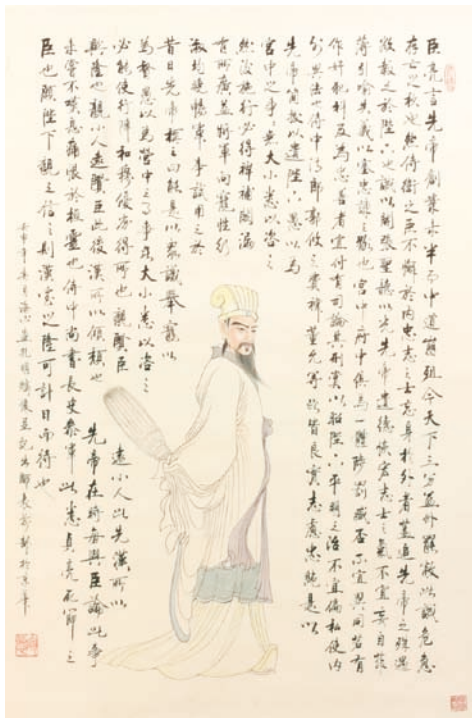 臣亮言先帝創業未半而中道崩殂今天下三分益州罷敝此誠危急
存亡之秋也然侍衛之臣不懈於內忠志之士忘身於外者蓋追先帝之殊遇
欲報之於陛下也誠宜開張聖聽以光先帝遺德恢宏志士之氣不宜妄自菲
薄引喻失義以塞忠諫之路也宮中府中俱為一體陟罰臧否不宜異同若有
作奸犯科及為忠善者宜付有司論其刑賞以昭陛下平明之治不宜偏私使內
外異法也侍中侍郎郭攸之費禕董允等此皆良實志慮忠純是以
先帝簡拔以遺陛下愚以為
宮中之事無大小悉以咨之
然後施行必得裨補闕漏
有所廣益將軍向寵性行
淑均曉暢軍事試用之於
昔日先帝稱之曰能是以眾議舉寵以
為督愚以為營中之事無大小悉以咨之
必能使行陣和穆優劣得所也親賢臣遠小人此先漢所以
興隆也親小人遠賢臣此後漢所以傾頹也先帝在時每與臣論此事
未嘗不嘆息痛恨於桓靈也侍中尚書長史參軍此悉貞亮死節之
臣也願陛下親之信之則漢室之隆可計日而待也